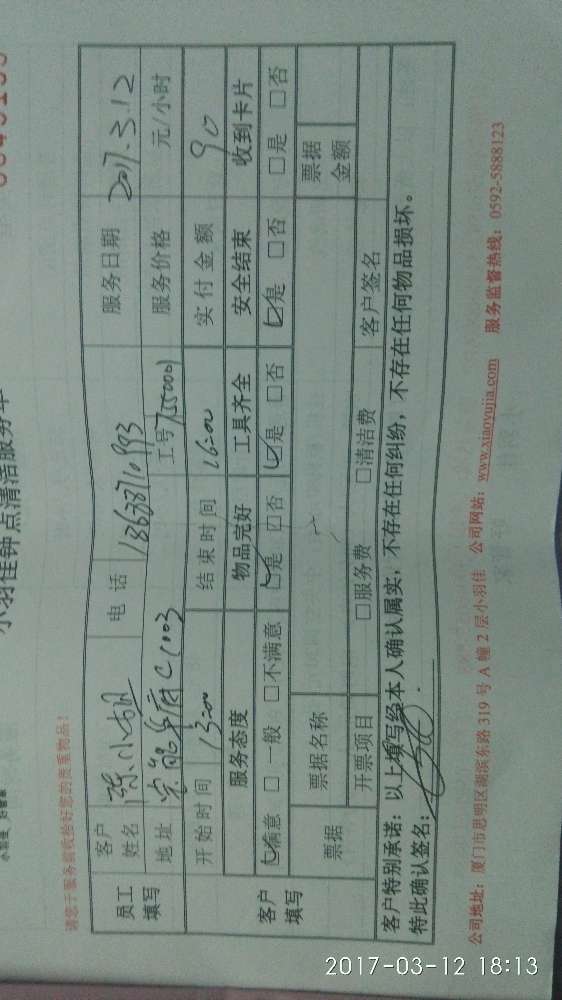 小羽佳钟点清洁服务单
请您于服务前收捡好您的贵重物品！
员工填写 客户姓名 陈小姐 电话 服务日期 2017.3.12
地址 C1003 工号 服务价格 元/小时
开始时间 13:00 结束时间 16:00 实付金额 90
客户填写 服务态度 物品完好 工具齐全 安全结束 收到卡片
☑满意 □一般 □不满意 ☑是 □否 ☑是 □否 ☑是 □否 □是 □否
票据 票据名称 票据金额
开票项目 □服务费 □清洁费 客户签名
客户特别承诺：以上填写经本人确认属实，不存在任何纠纷，不存在任何物品损坏。
特此确认签名：
公司地址：厦门市思明区湖滨东路 319 号 A 幢 2 层小羽佳 公司网站：www.xiaoyujia.com 服务监督热线：0592-5888123
2017-03-12 18:13